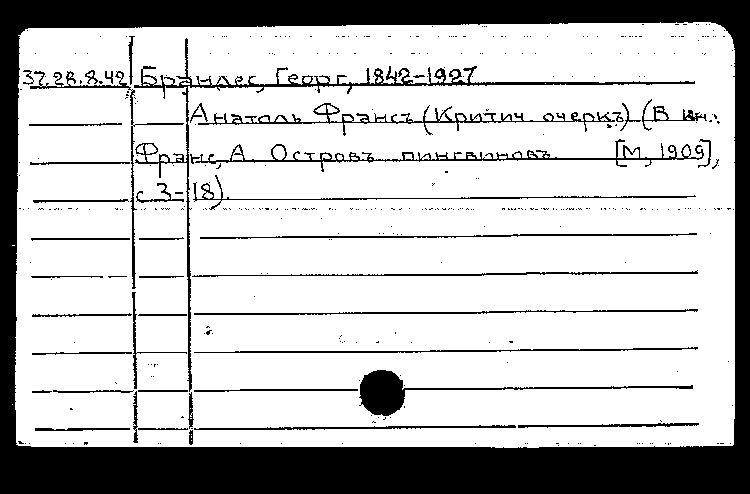 37.28.8.42 Брандес, Георг, 1842-1927
Анатоль Франсъ (Критич. очеркъ) (В кн.:
Франс, А. Островъ пингвиновъ. [М, 1909],
с 3-18).